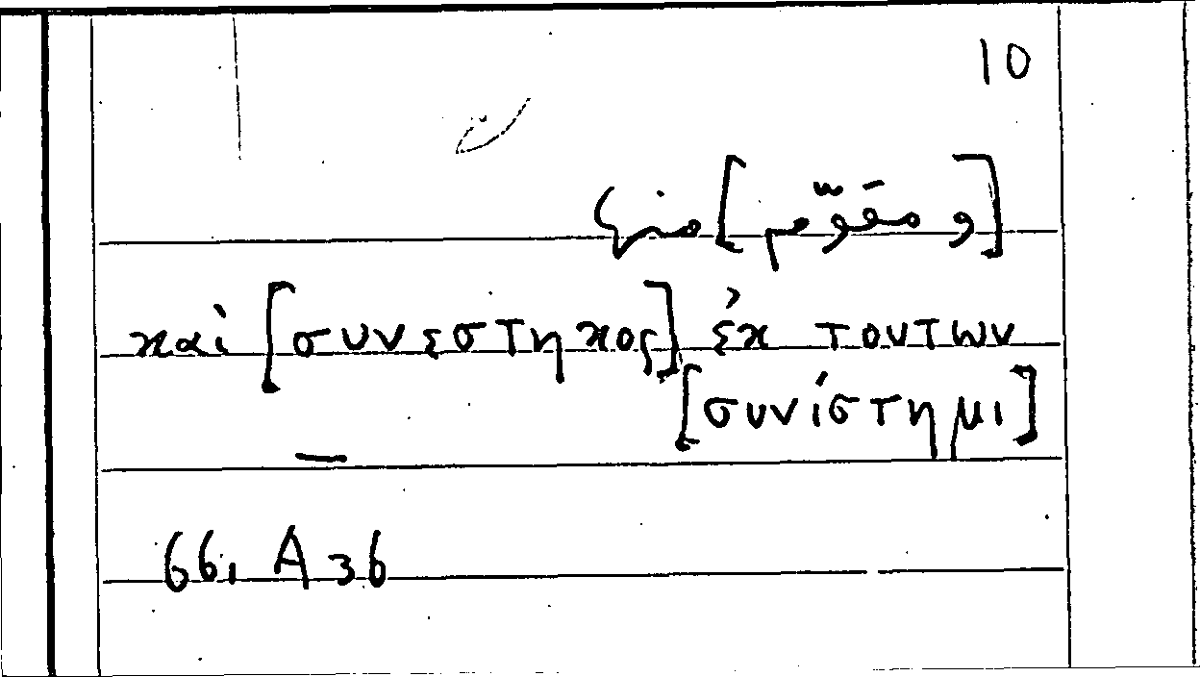 10
[و مقوّم] منها
καὶ [συνεστηκος] ἐκ τουτων
[συνίστημι]
66, A 36